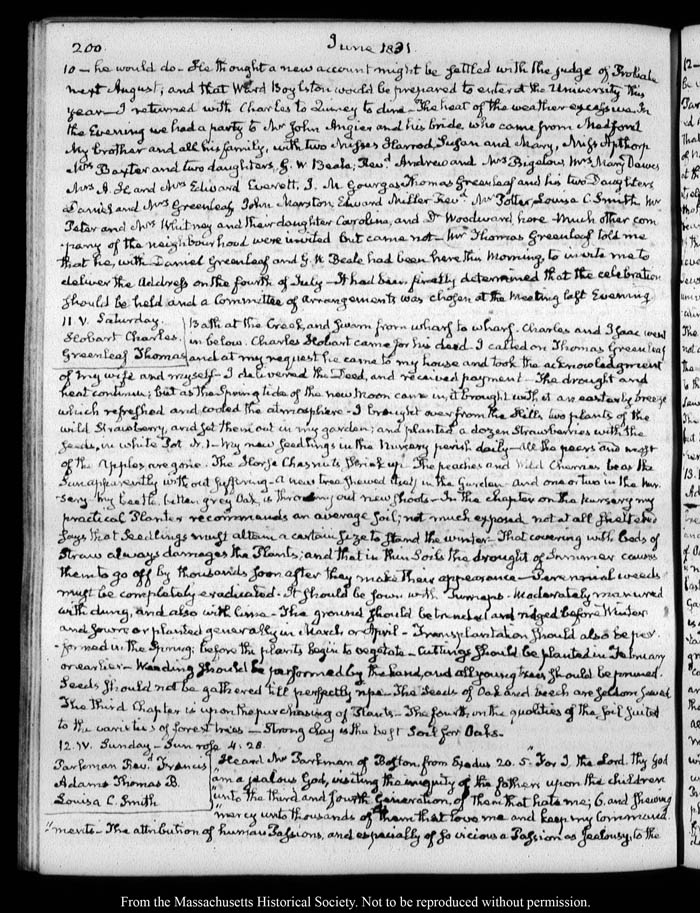 200.
June 1831.
10 - he would do - He thought a new account might be settled with the judge of Probate
next August; and that Ward Boylston would be prepared to enter at the University this
year - I returned with Charles to Quincy to dine. The heat of the weather excessive. In
the Evening we had a party to Mr John Angier and his bride, who came from Medford
My brother and all his family, with two Misses Harrod, Susan and Mary, Miss Apthorp
Mrs Baxter and two daughters, G. W Beale; Revd Andrew and Mrs Bigelow, Mrs Mary Dawes
Mrs A. H. and Mrs Edward Everett, J. M Gourgas Thomas Greenleaf and his two Daughters
Daniel and Mrs Greenleaf, John Marston, Edward Miller Revd Mr Potter, Louisa C. Smith, Mr
Peter and Mrs Whitney and their daughter Caroline, and Dr Woodward, here. Much other com
pany of the neighbourhood were invited but came not - Mr Thomas Greenleaf told me
that he, with Daniel Greenleaf and G. W Beale had been here this Morning, to invite me to
deliver the Address on the fourth of July - It had been finally determined that the celebration
should be held and a Committee of arrangements was chosen at the meeting last Evening
11. V. Saturday.
Hobart Charles.
Greenleaf Thomas
Bath at the Creek, and swam from wharf to wharf. Charles and Isaac went
in below. Charles Hobart came for his deed. I called on Thomas Greenleaf
and at my request he came to my house and took the acknowledgment
of my wife and myself - I delivered the Deed, and received payment - The drought and
heat continue; but as the Spring tide of the new Moon came in, it brought with it an easterly breeze
which refreshed and cooled the atmosphere - I brought over from the Hills two plants of the
wild Strawberry, and set them out in my garden; and planted a dozen Strawberries with the
seeds, in white Pot N. 1 - My new seedlings in the Nursery perish daily - All the pears and most
of the Apples are gone. The Horse Chesnuts shrink up. The peaches and Wild Cherries bear the
Sun apparently without suffering - A new tree shewed itself in the Garden and one or two in the Nur.
sery - My beetle bitten grey Oak, is throwing out new shoots - In the chapter on the Nursery my
practical Planter recommends an average soil; not much exposed not at all sheltered
Says that seedlings must attain a certain size to stand the winter. That covering with beds of
Straw always damages the Plants; and that in thin Soils the drought of Summer causes
them to go off by thousands soon after they make their appearance - Perennial weeds
must be completely eradicated. It should be sown with Turneps. Moderately manured
with dung, and also with lime - The ground should be trenched and ridged before Winter
and sown or planted generally in March or April - Transplantation should also be per.
formed in the Spring; before the plants begin to vegetate - Cuttings should be planted in February
or earlier - Weeding should be performed by the hand, and all young trees should be pruned.
Seeds should not be gathered till perfectly ripe - The Seeds of Oak and beech are seldom saved
The third Chapter is upon the purchasing of Plants - The fourth, on the qualities of the soil suited
to the varieties of forest trees - Strong clay is the best Soil for Oaks.
12. IV. Sunday - Sun rose 4. 28.
Parkman Revd Francis
Adams Thomas B.
Louisa C. Smith
Heard Mr Parkman of Boston, from Exodus 20. 5. "For I the Lord thy God
"am a jealous God, visiting the iniquity of the fathers upon the children
"unto the third and fourth Generation, of them that hate me; 6. and shewing
"mercy unto thousands of them that love me and keep my Command.
"ments - The attribution of human Passions, and especially of so vicious a Passion as jealousy, to the
From the Massachusetts Historical Society. Not to be reproduced without permission.